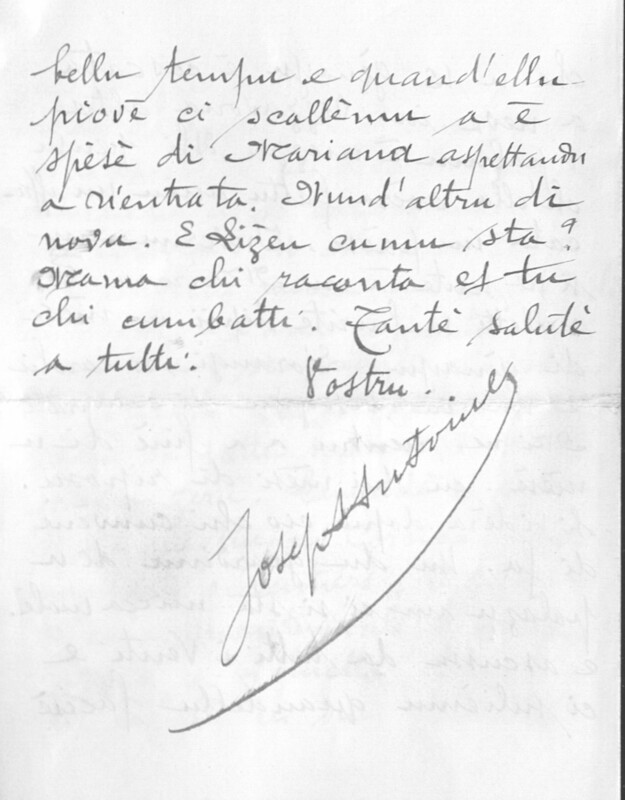 bellu tempu e quand'ellu
piove ci scallèmu a e
spèsè di Mariana aspettandu
a rientrata. Nund'altru di
novu. E Lizeu cumu sta?
Mama chi raconta et tu
chi cumbatti. Tantè salutè
a tutti.
Vostru.
Joseph Antoine